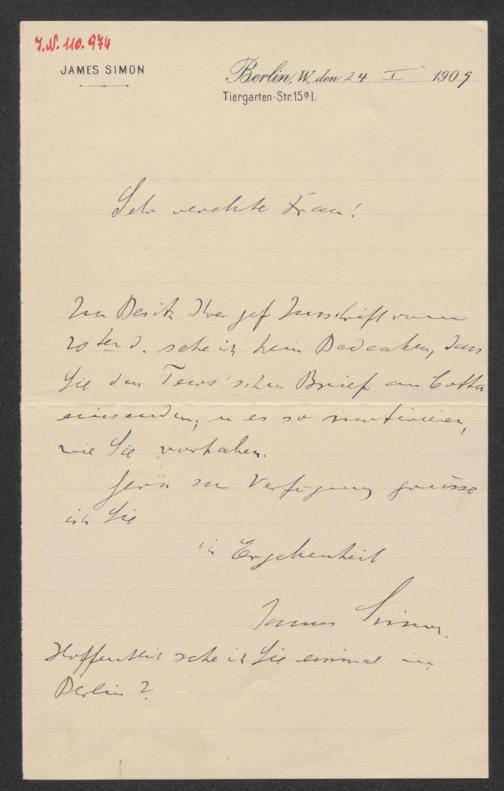 J.N. 110.974
JAMES SIMON
Berlin, W, den 24 I 1909
Tiergarten-Str. 15a I.
Sehr verehrte Frau!
Im Besitz Ihrer gef Zuschrift vom
20ten d. sehe ich kein Bedenken, dass
Sie den Tews'schen Brief an Cotta
einsenden, u es so motivieren,
wie Sie vorhaben.
Gern zur Verfügung grüsse
ich Sie
in Ergebenheit
James Simon.
Hoffentlich sehe ich Sie einmal in
Berlin?